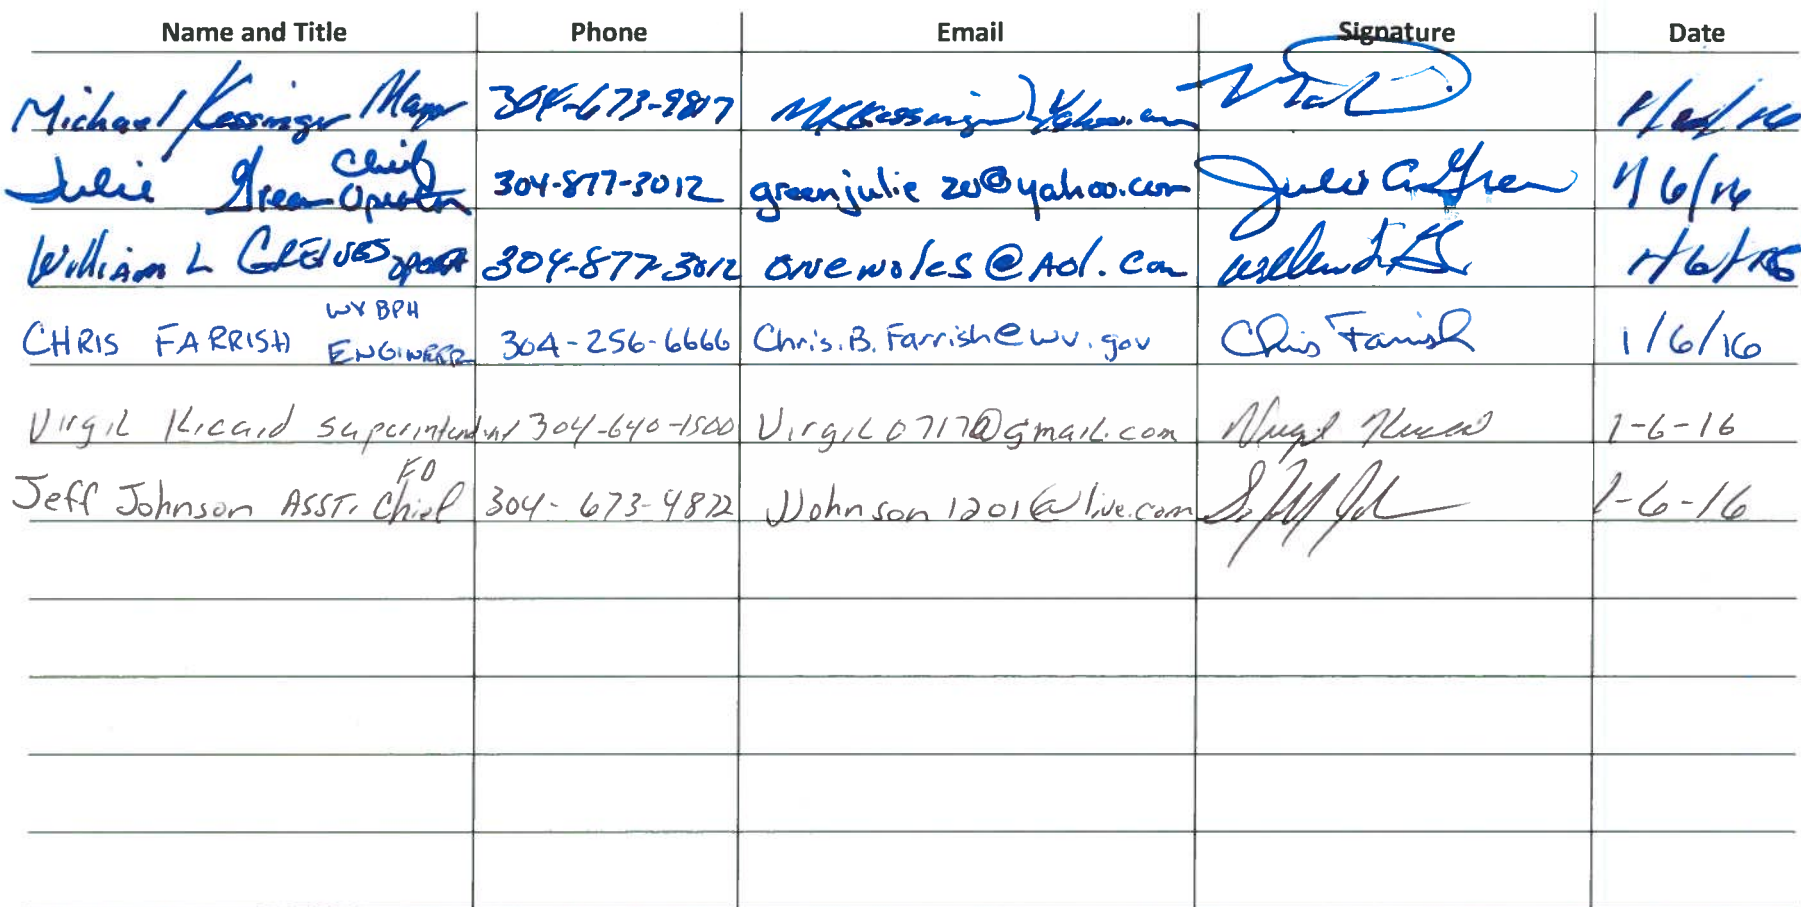 Name and Title Phone Email Signature Date
Michael Kessinger Mayor 304-673-9817
Julie Green Chief Operator 304-877-3012 greenjulie20@yahoo.com Julie A Green 1/6/16
William L 304-877-3012 @AOL.Com 1/6/16
CHRIS FARRISH WV BPH ENGINEER 304-256-6666 Chris.B.Farrish@wv.gov Chris Farrish 1/6/16
Virgil Kicaid superintendent 304-640-1500 Virgil0717@gmail.com 1-6-16
Jeff Johnson ASST. Chief FD 304-673-4872 JJohnson1201@live.com 1-6-16